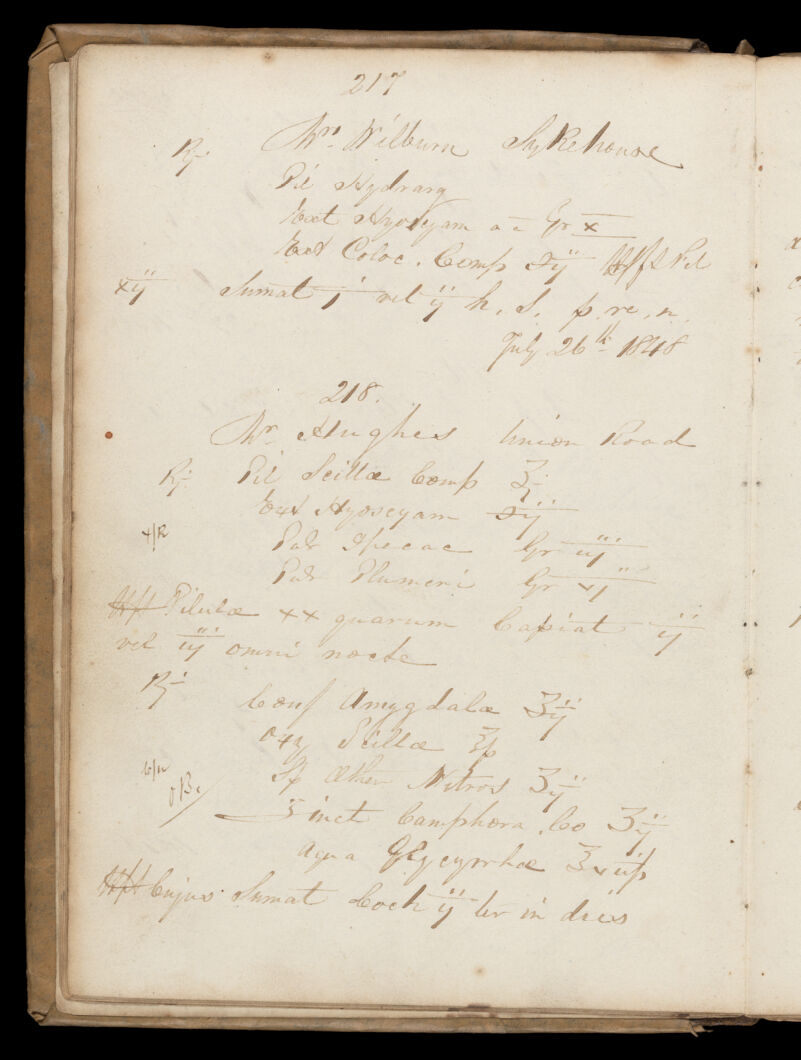 217
Mrs. Wilburn Sykehouse
Rj
Pil Hydrarg
Ext Hyoscyam aa Gr x
Ext Coloc. Comp ℈ij Mft Pil
xij Sumat j vel ij h. s. p. re. n.
July 26th 1848
218.
Mr. Hughes Union Road
Rj Pil Scillæ Comp ʒj
Ext Hyoscyam ℈ij
Pulv Ipecac Gr iij
Pulv Gr vj
Mft Pilulæ xx quarum Capiat ij
vel iij omni nocte
Rj Conf Amygdalæ ʒij
Oxy Scillæ
Sp Æther Nitros ʒij
Tinct Camphora. Co ʒij
Aqua Glycyrrhæ
Mft Cujus Sumat Coch ij ter in dies